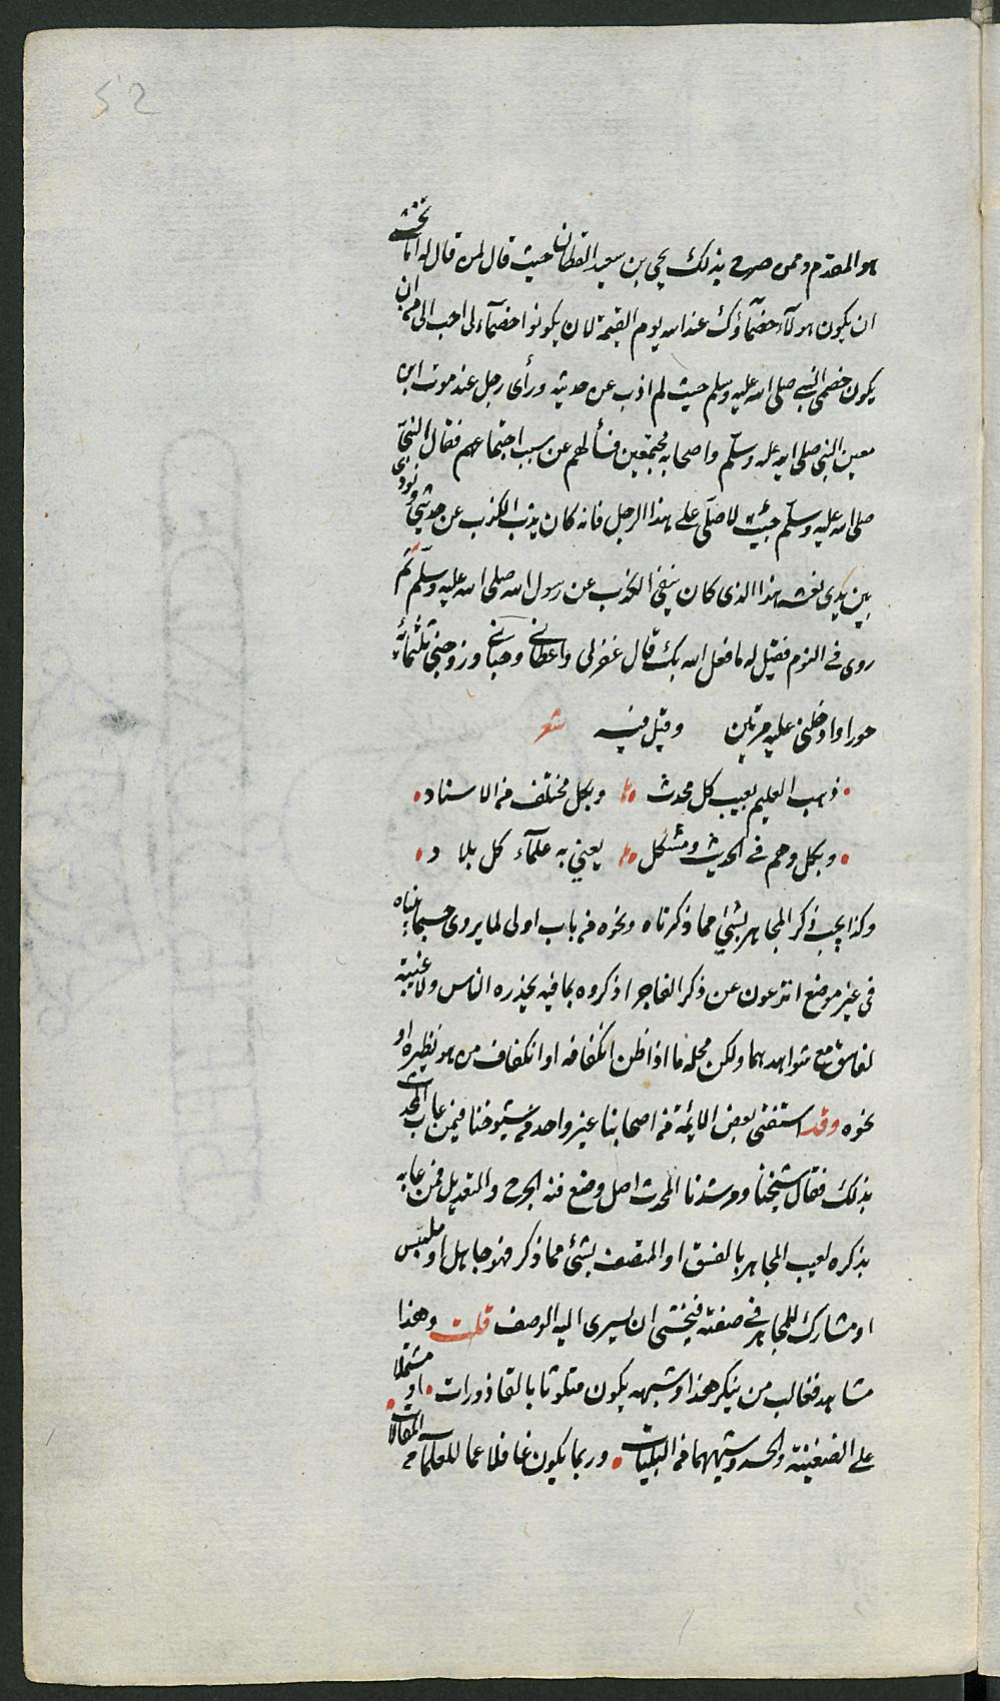 52
هو المقدم وممن صرح بذلك يحيى بن سعيد القطان حيث قال لمن قال له اما تخشى
ان يكون هولآء خصمآؤك عند الله يوم القيمة لان يكونوا خصمآء لى احب الى من ان
يكون خصمى النبى صلى الله عليه وسلم حيث لم اذب عن حديثه ورأى رجل عند موت ابن
معين النبى صلى الله عليه وسلّم واصحابه مجتمعين فسألهم عن سبب اجتماعهم فقال النبىّ
صلى الله عليه وسلّم جيئت لاصلّى على هذا الرجل فانه كان يذب الكذب عن حديثى ونودى
بين يدى نعشه هذا الذى كان ينفى الكذب عن رسول الله صلى الله عليه وسلّم ثم
روى فى النوم فقيل له ما فعل الله بك قال غفر لى واعطانى وحبانى وزوجنى ثلثمائة
حورا وادخلنى عليه مرتين وقيل فيه شعر
ذهب العليم بعيب كل محدث وبكل مختلف من الاسناد
وبكل وهم فى الحديث ومشكل يعنى به علمآء كل بلاد
وكذا يجب ذكر المجاهر بشئ مما ذكرناه ونحوه من باب اولى لما يروى حسبما بيناه
فى غير موضع اتزعون عن ذكر الفاجر اذكروه بما فيه يحذره الناس ولا غيبة
لفاسق مع شواهدهما ولكن محله ما اذا ظن انكفافه او انكفاف من هو نظيره او
نحوه وقد استفتى بعض الايمة من اصحابنا غير واحد من شيوخنا فيمن عاب المحدث
بذلك فقال شيخنا ومرشدنا المحدث اصل وضع فنه الجرح والتعديل فمن عابه
بذكره لعيب المجاهر بالفسق او المتصف بشئ مما ذكر فهو جاهل او ملبس
او مشارك للمجاهر فى صفته فيخشى ان يسرى اليه الوصف قلت وهذا
مشاهد فغالب من ينكر هذا وشبهه يكون متلوثا بالقاذورات او مشتملا
على الضغينة والحسد وشبههما من البليات وربما يكون غافلا عما للعلمآء من المقالات